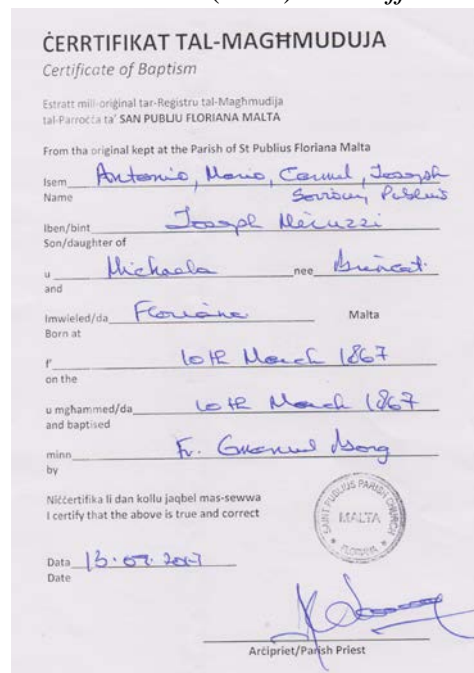 ĊERRTIFIKAT TAL-MAGĦMUDUJA
Certificate of Baptism
Estratt mill-original tar-Registru tal-Magħmudija
tal-Parroċċa ta' SAN PUBLIJU FLORIANA MALTA
From tha original kept at the Parish of St Publius Floriana Malta
Isem Antonio, Mario, Carmel, Joseph
Name Publius
Iben/bint Joseph
Son/daughter of
u Michaela nee Brincat
and
Imwieled/da Floriana Malta
Born at
f' 10th March 1867
on the
u mgħammed/da 10th March 1867
and baptised
minn Fr. Borg
by
Niċċertifika li dan kollu jaqbel mas-sewwa
I certify that the above is true and correct
SAINT PUBLIUS PARISH CHURCH
MALTA
FLORIANA
Data 13.07.2017
Date
Arċipriet/Parish Priest